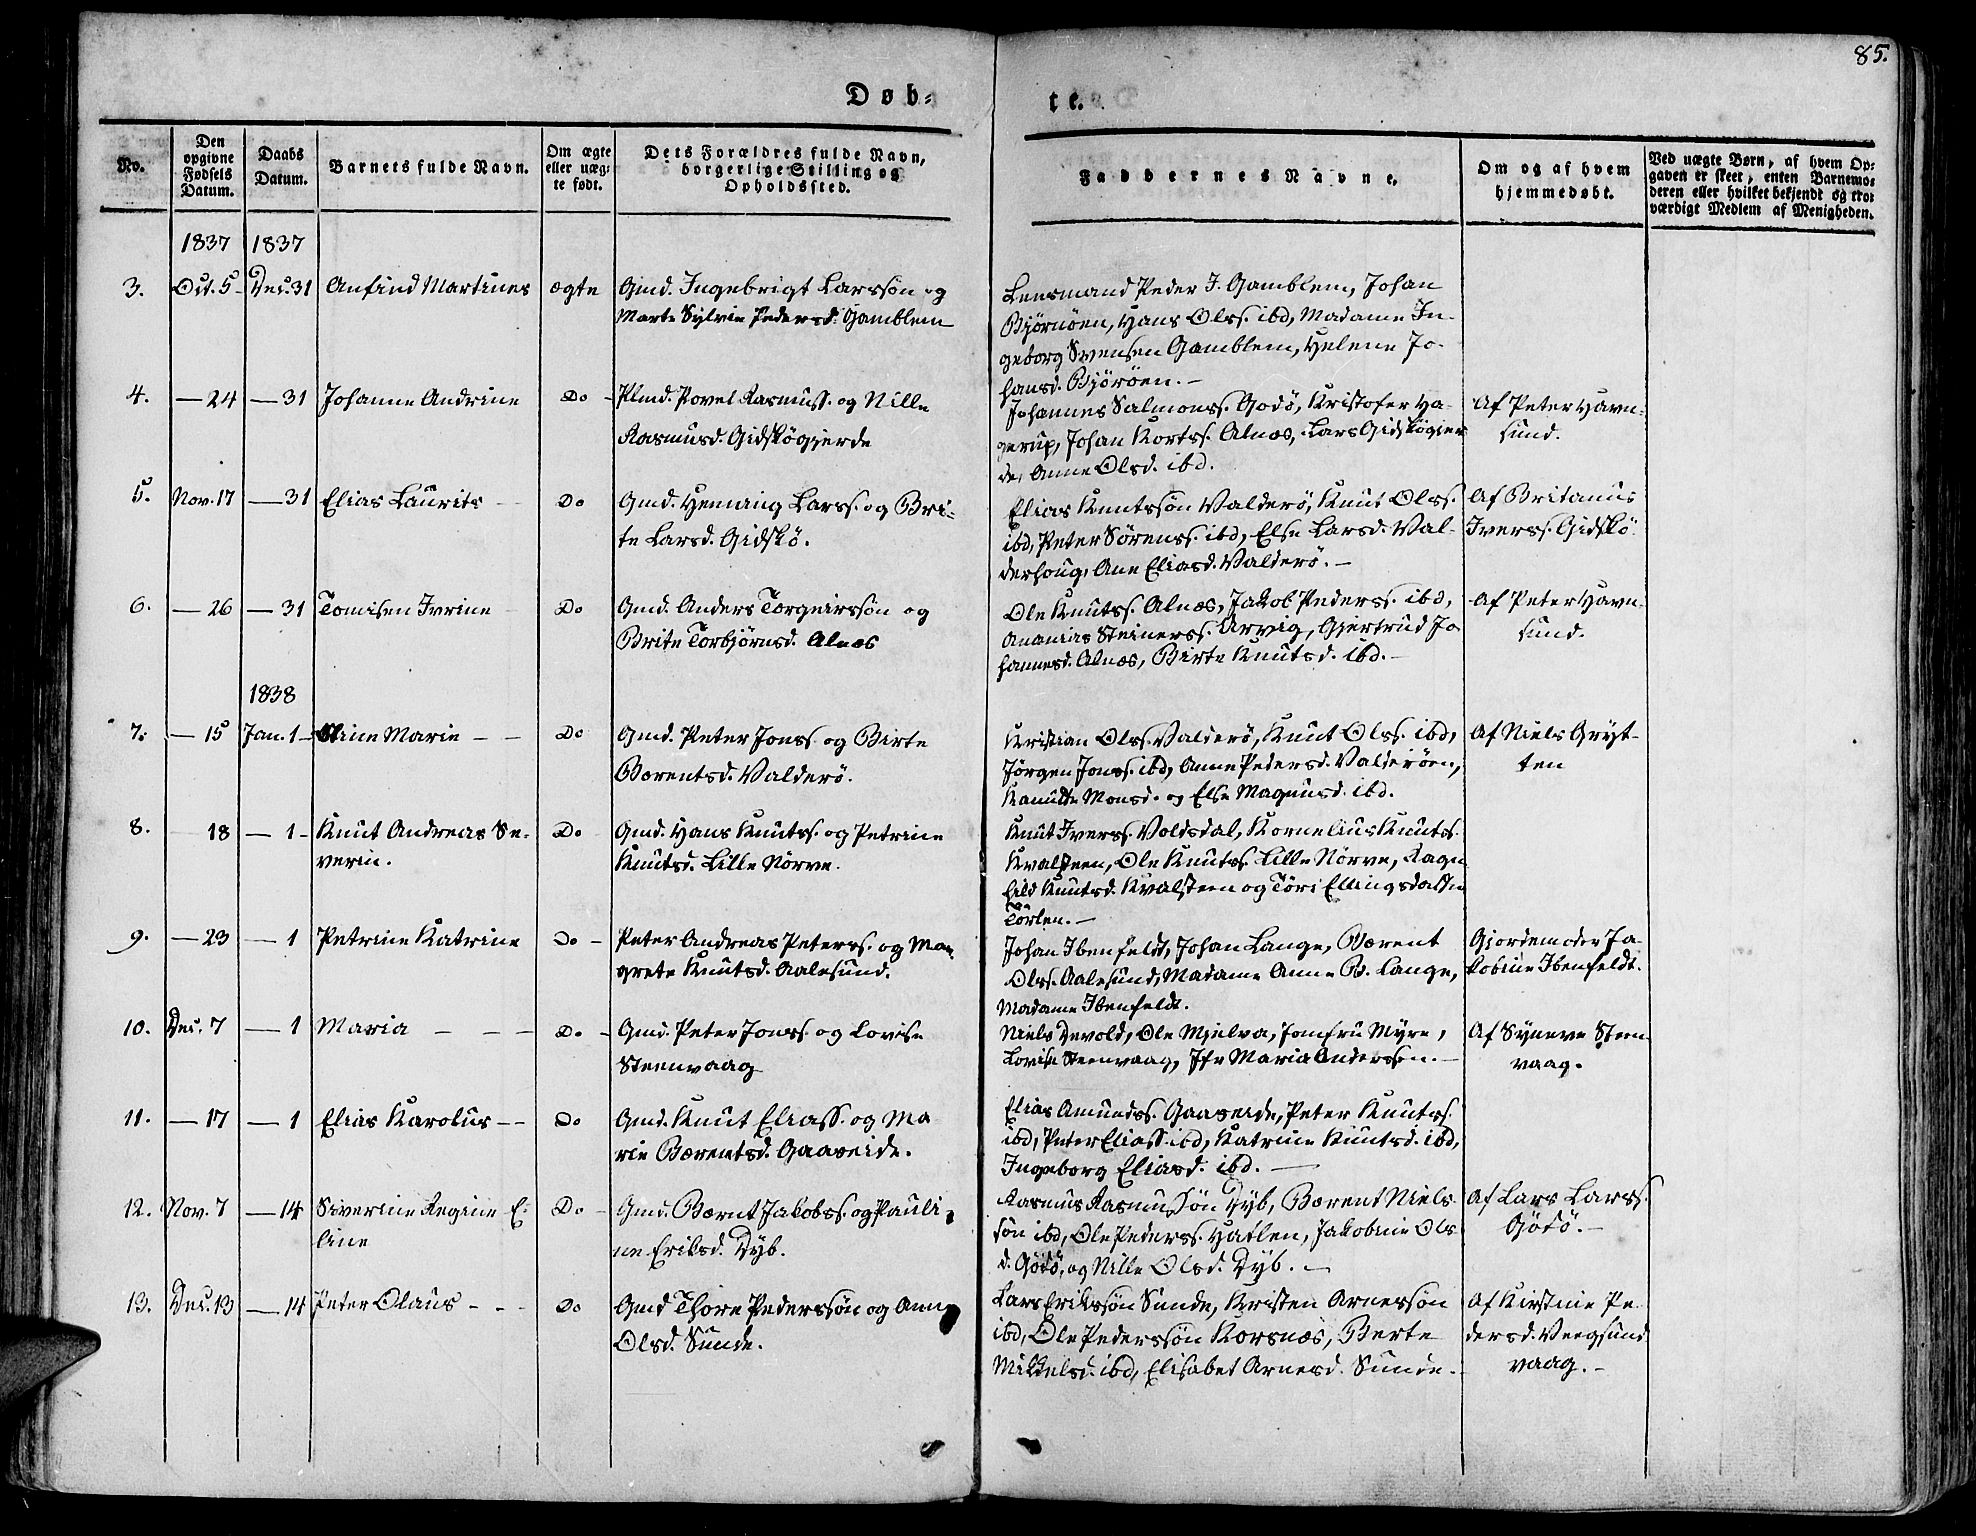 85.
Døb-
te.
No.
Den opgivne Fødsels Datum.
Daabs Datum.
Barnets fulde Navn.
Om ægte eller uægte født.
Dets Forældres fulde Navn, borgerlige Stilling og Opholdssted.
Faddernes Navne.
Om og af hvem hjemmedøbt.
Ved uægte Børn, af hvem Opgaven er skeet, enten Barnemoderen eller hvilket bekjendt og troværdigt Medlem af Menigheden.
1837 1837
3. Oct. 5 - Dec. 31 Anfind Martines ægte Gmd. Ingebrigt Larssøn og
Marte Sylvie Pedersd. Gamblem
Lensmand Peder J. Gamblem, Johan
Bjørnøen, Hans Olss. ibd, Madame In-
geborg Svensen Gamblem, Helene Jo-
hansd. Bjørøen. -
4. — 24 — 31 Johanne Andrine Do - Plmd. Povel Rasmuss. og Nille
Rasmusd. Gidskøgjerde
Johannes Salmonss. Godø, Kristofer Ha-
gerup, Johan Kortss. Alnæs, Lars Gidskøgjer
de, Anne Olsd. ibd.
Af Peter Havn-
sund.
5. Nov. 17 — 31 Elias Laurits Do Gmd. Henning Larss. og Bri-
te Larsd. Gidskø.
Elias Knutssøn Valderø, Knut Olss.
ibd, Peter Sørenss. ibd, Else Larsd. Val-
derhoug, Ane Eliasd. Valderø. -
Af Britanus
Iverss. Gidskø.
6. — 26 — 31 Tomisen Iverine Do Gmd. Anders Torgeirssøn og
Brite Torbjørnsd. Alnæs
Ole Knutss. Alnæs, Jakob Pederss. ibd,
Ananias Steinerss. Urvig, Gjertrud Jo
hannesd. Alnæs, Birte Knutsd. ibd. -
Af Peter Havn-
sund.
1838
7. — 15 Jan. 1 - Oline Marie - - Do Gmd. Peter Jonss. og Birte
Bærentsd. Valderø.
Kristian Olss. Valderø, Knut Olss. ibd,
Jørgen Jonss. ibd, Anne Pedersd. Valderøen,
Kanutte Monsd. og Else Magnusd. ibd.
Af Niels Gryt-
ten
8. — 18 — 1 - Knut Andreas Se-
verin.
Do Gmd. Hans Knutss. og Petrine
Knutsd. Lille Nørve.
Knut Iverss. Voldsdal, Kornelius Knutss.
Kvalsteen, Ole Knutss. Lille Nørve, Ragn
hild Knutsd. Kvalsteen og Tøri Ellingsdatter
Tørlen. -
9. — 23 — 1 Petrine Katrine Do - Peter Andreas Peterss. og Mar-
grete Knutsd. Aalesund.
Johan Ibenfeldt, Johan Lange, Bærent
Olss. Aalesund, Madame Anne B. Lange,
Madame Ibenfeldt.
Gjordemoder Ja-
kobine Ibenfeldt.
10. Dec. 7 — 1 Maria - - - Do - Gmd. Peter Jonss. og Lovise
Steenvaag
Niels Devold, Ole Mjelva, Jomfru Myre,
Lovise Steenvaag, Jfr Maria Anderssen. -
Af Syneve Steen
vaag.
11. — 17 — 1 Elias Karolus - - Do Gmd. Knut Eliass. og Ma
rie Bærentsd. Gaaseide.
Elias Amundss. Gaaseide, Peter Knutss.
ibd, Peter Eliass. ibd, Katrine Knutsd. ibd,
Ingeborg Eliasd. ibd. —
12. Nov. 7 — 14 Siverine Regine E-
line
Do - Gmd. Bærnt Jakobss. og Pauli-
ne Eriksd. Dyb.
Rasmus Rasmussøn Dyb, Bærent Niels
søn ibd, Ole Pederss. Hatlen, Jakobine Ols
d. Godø, og Nille Olsd. Dyb. -
Af Lars Larss.
Godø. -
13. Dec. 13 — 14 Peter Olaus - - - Do Gmd Thore Pederssøn og Anne
Olsd. Sunde.
Lars Erikssøn Sunde, Kristen Arnessøn
ibd, Ole Pederssøn Korsnæs, Berte
Mikkelsd. ibd, Elisabet Arnesd. Sunde. -
Af Kirstine Pe
dersd. Veegsund
vaag. -